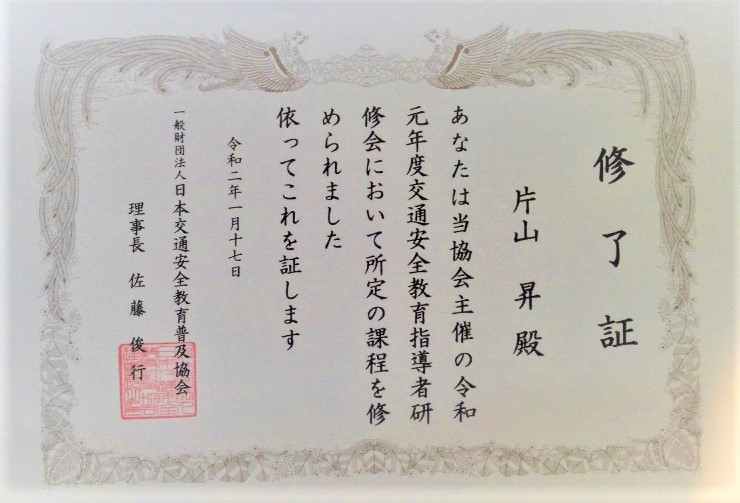 修了証
片山 昇 殿
あなたは当協会主催の令和
元年度交通安全教育指導者研
修会において所定の課程を修
められました
依ってこれを証します
令和二年一月十七日
一般財団法人日本交通安全教育普及協会
理事長 佐藤 俊行